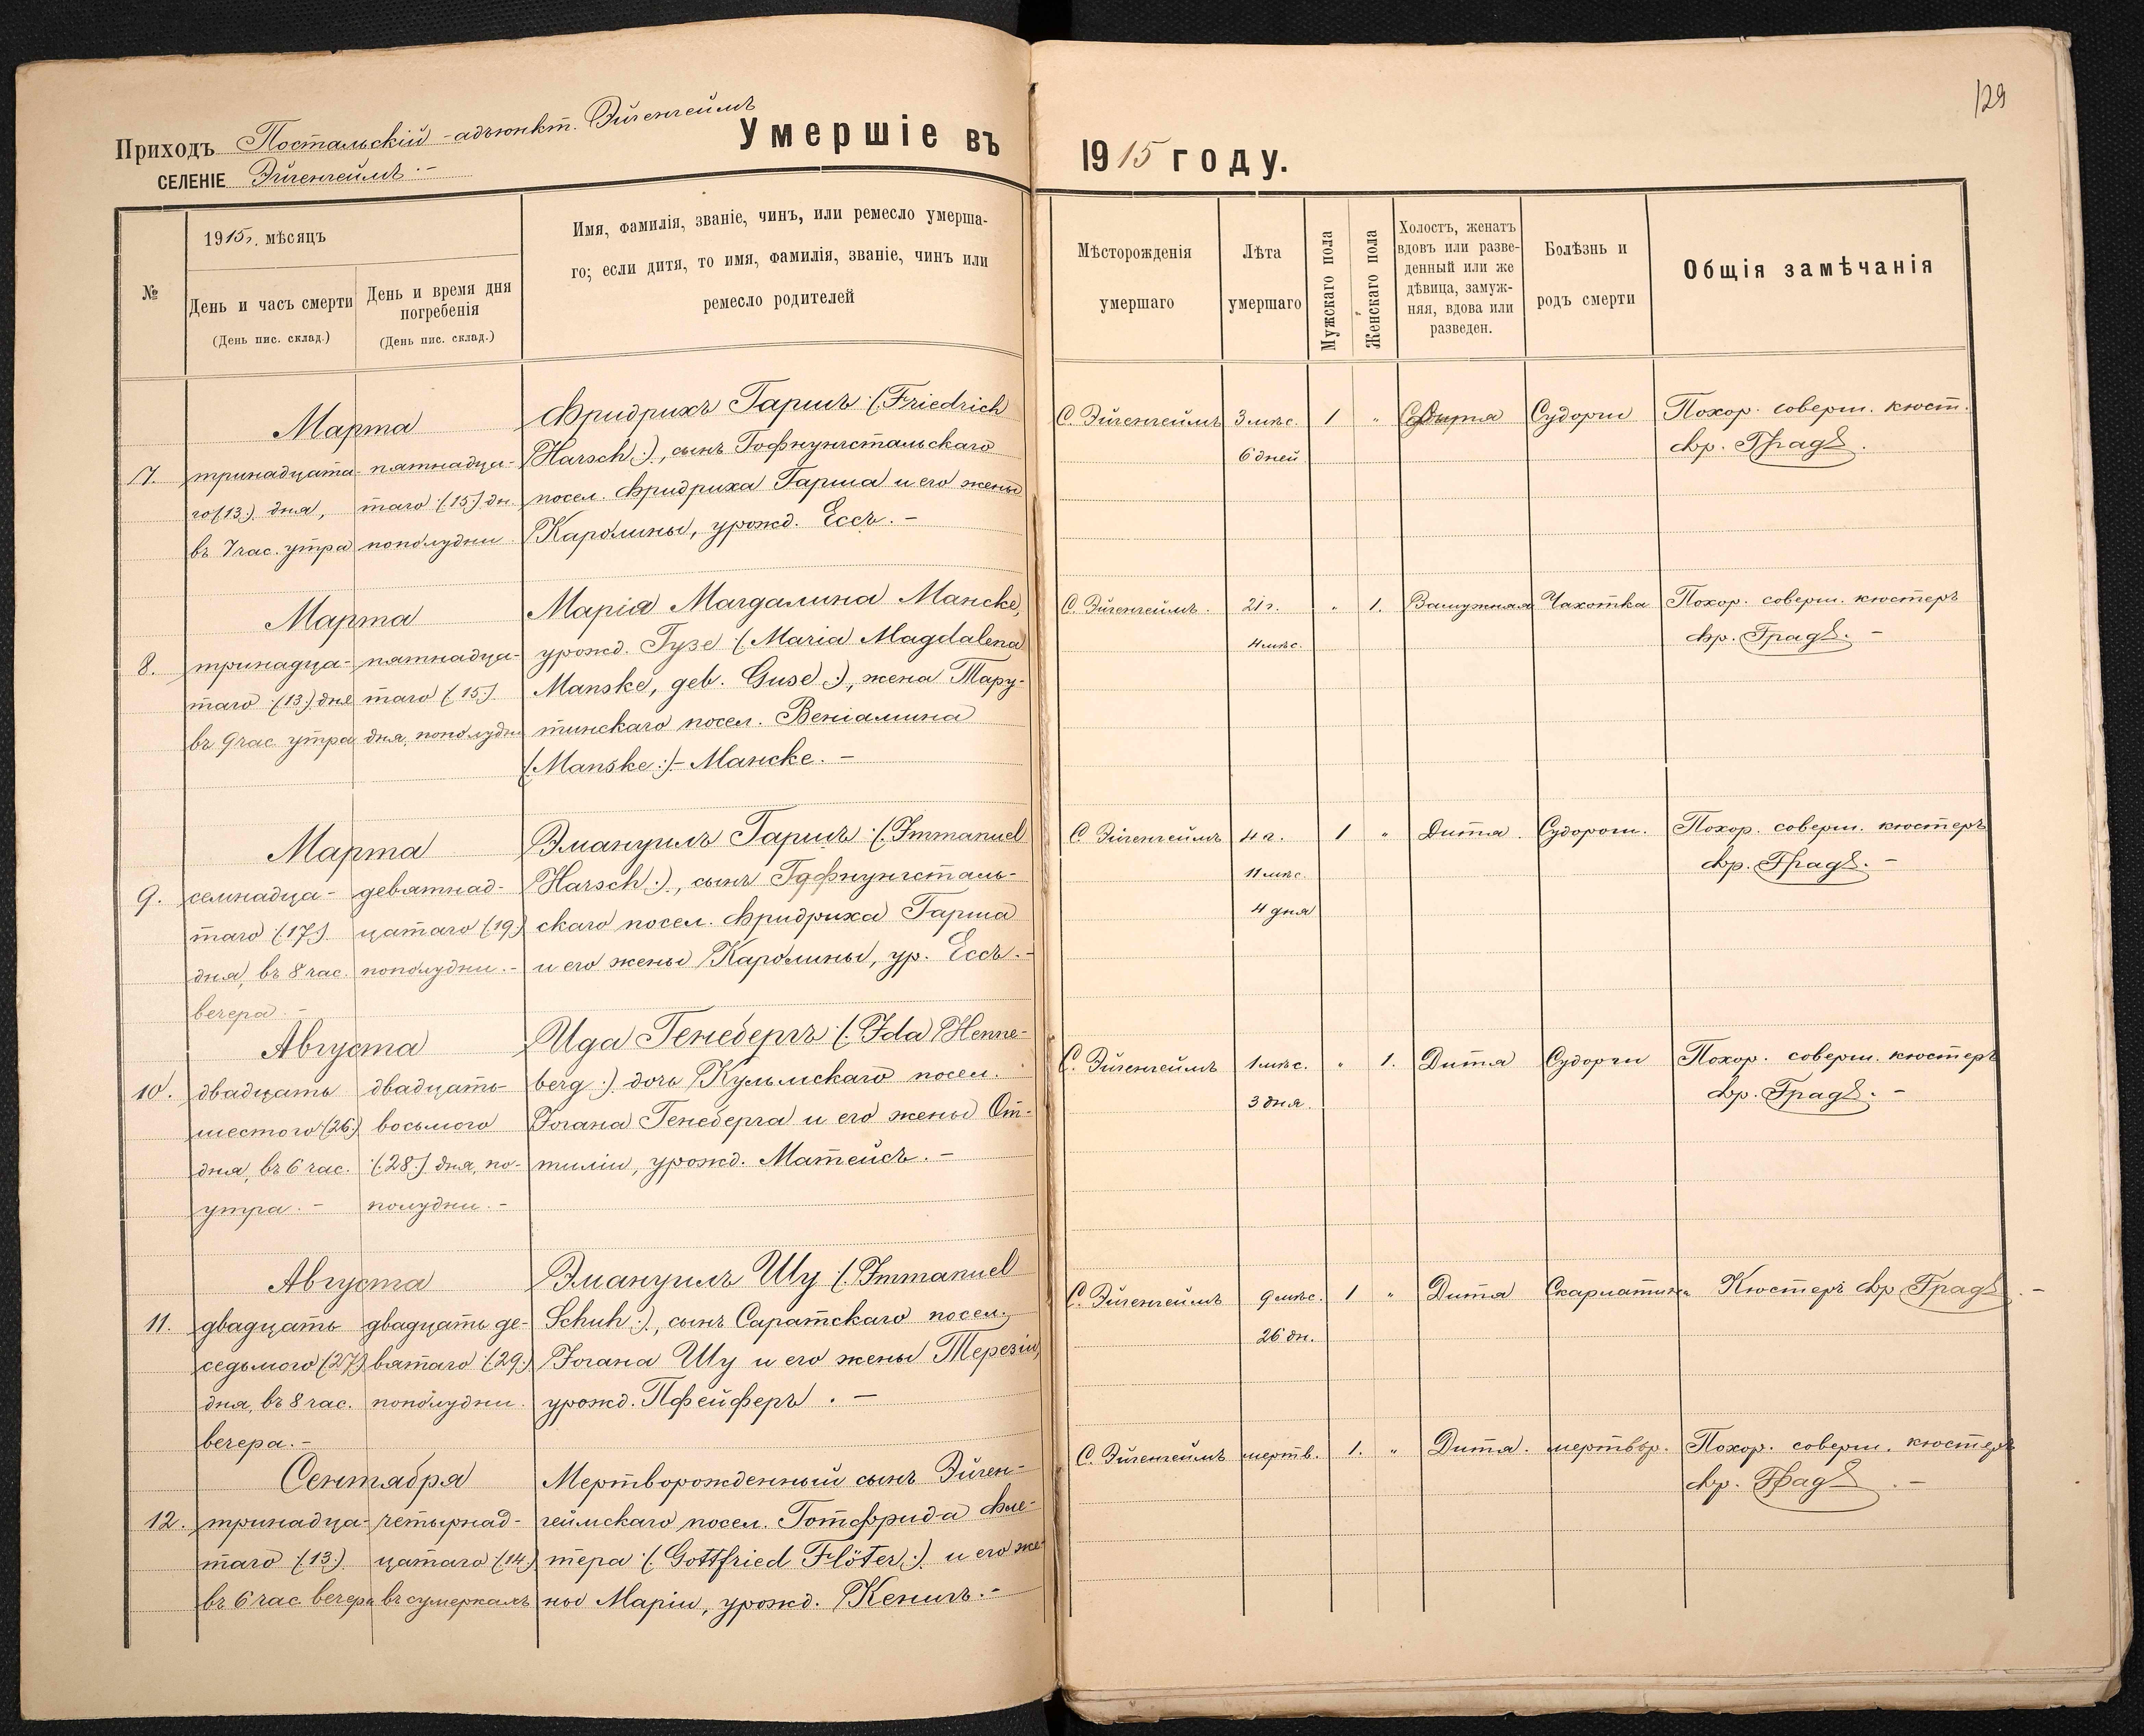 129
Приходъ Постальскій - адъюнкт. Эйгенгеймъ
Умершіе въ 1915 году.
СЕЛЕНІЕ Эйгенгеймъ.-
№
1915 г. мѣсяцъ
День и часъ смерти
(День пис. склад.)
День и время дня
погребенія
(День пис. склад.)
Имя, фамилія, званіе, чинъ, или ремесло умерша-
го; если дитя, то имя, фамилія, званіе, чинъ или
ремесло родителей
Мѣсторожденія
умершаго
Лѣта
умершаго
Мужскаго пола
Женскаго пола
Холостъ, женатъ
вдовъ или разве-
денный или же
дѣвица, замуж-
няя, вдова или
разведен.
Болѣзнь и
родъ смерти
Общія замѣчанія
17.
Марта
тринадцата-
го (:13:) дня,
въ 7 час. утра
пятнадца-
таго (:15:) дн.
пополудни
Фридрихъ Гаршъ (:Friedrich
Harsch:), сынъ Гофнунгстальскаго
посел. Фридриха Гарша и его жены
Каролины, урожд. Ессъ.-
С. Эйгенгеймъ
3 мѣс.
6 дней
1
"
Дитя
Судорги
Похор. соверш. кюст.
Фр. Градъ.
8.
Марта
тринадца-
таго (:13:) дня
въ 9 час. утра
пятнадца-
таго (:15:)
дня, пополудни
Марія Магдалина Манске,
урожд. Гузе (:Maria Magdalena
Manske, geb. Guse:), жена Тару-
тинскаго посел. Веніамина
(:Manske:)- Манске.-
С. Эйгенгеймъ.
21 г.
4 мѣс.
"
1.
Замужняя
Чахотка
Похор. соверш. кюстеръ
Фр. Градъ.-
9.
Марта
семнадца-
таго (:17:)
дня, въ 8 час.
вечера.-
девятнад-
цатаго (:19:)
пополудни.-
Эмануилъ Гаршъ (:Immanuel
Harsch:), сынъ Гофнунгсталь-
скаго посел. Фридриха Гарша
и его жены Каролины, ур. Ессъ.-
С. Эйгенгеймъ
4 г.
11 мѣс.
4 дня
1
"
Дитя.
Судороги.
Похор. соверш. кюстеръ
Фр. Градъ.-
10.
Августа
двадцать
шестого (:26:)
дня, въ 6 час.
утра.-
двадцать
восьмого
(:28:) дня, по-
полудни.-
Ида Генебергъ (:Ida Henne-
berg:) дочь Кульмскаго посел.
Іогана Генеберга и его жены От-
тиліи, урожд. Матейсъ.-
С. Эйгенгеймъ
1 мѣс.
3 дня.
"
1.
Дитя
Судорги
Похор. соверш. кюстеръ
Фр. Градъ.-
11.
Августа
двадцать
седьмого (:27:)
дня, въ 8 час.
вечера.-
двадцать де-
вятаго (:29:)
пополудни.
Эмануилъ Шу (:Immanuel
Schuh:), сынъ Саратскаго посел.
Іогана Шу и его жены Терезіи,
урожд. Пфейферъ.-
С. Эйгенгеймъ
9 мѣс.
26 дн.
1
"
Дитя
Скарлатина
Кюстеръ Фр. Градъ.-
12.
Сентября
тринадца-
таго (:13:)
въ 6 час вечера
четырнад-
цатаго (:14:)
въ сумеркахъ
Мертворожденный сынъ Эйген-
геймскаго посел. Готфрида Фле-
тера (:Gottfried Flöter:) и его же-
ны Маріи, урожд. Кенигъ.-
С. Эйгенгеймъ
мертв.
1.
"
Дитя.
мертвор.
Похор. соверш. кюстеръ
Фр. Градъ.-